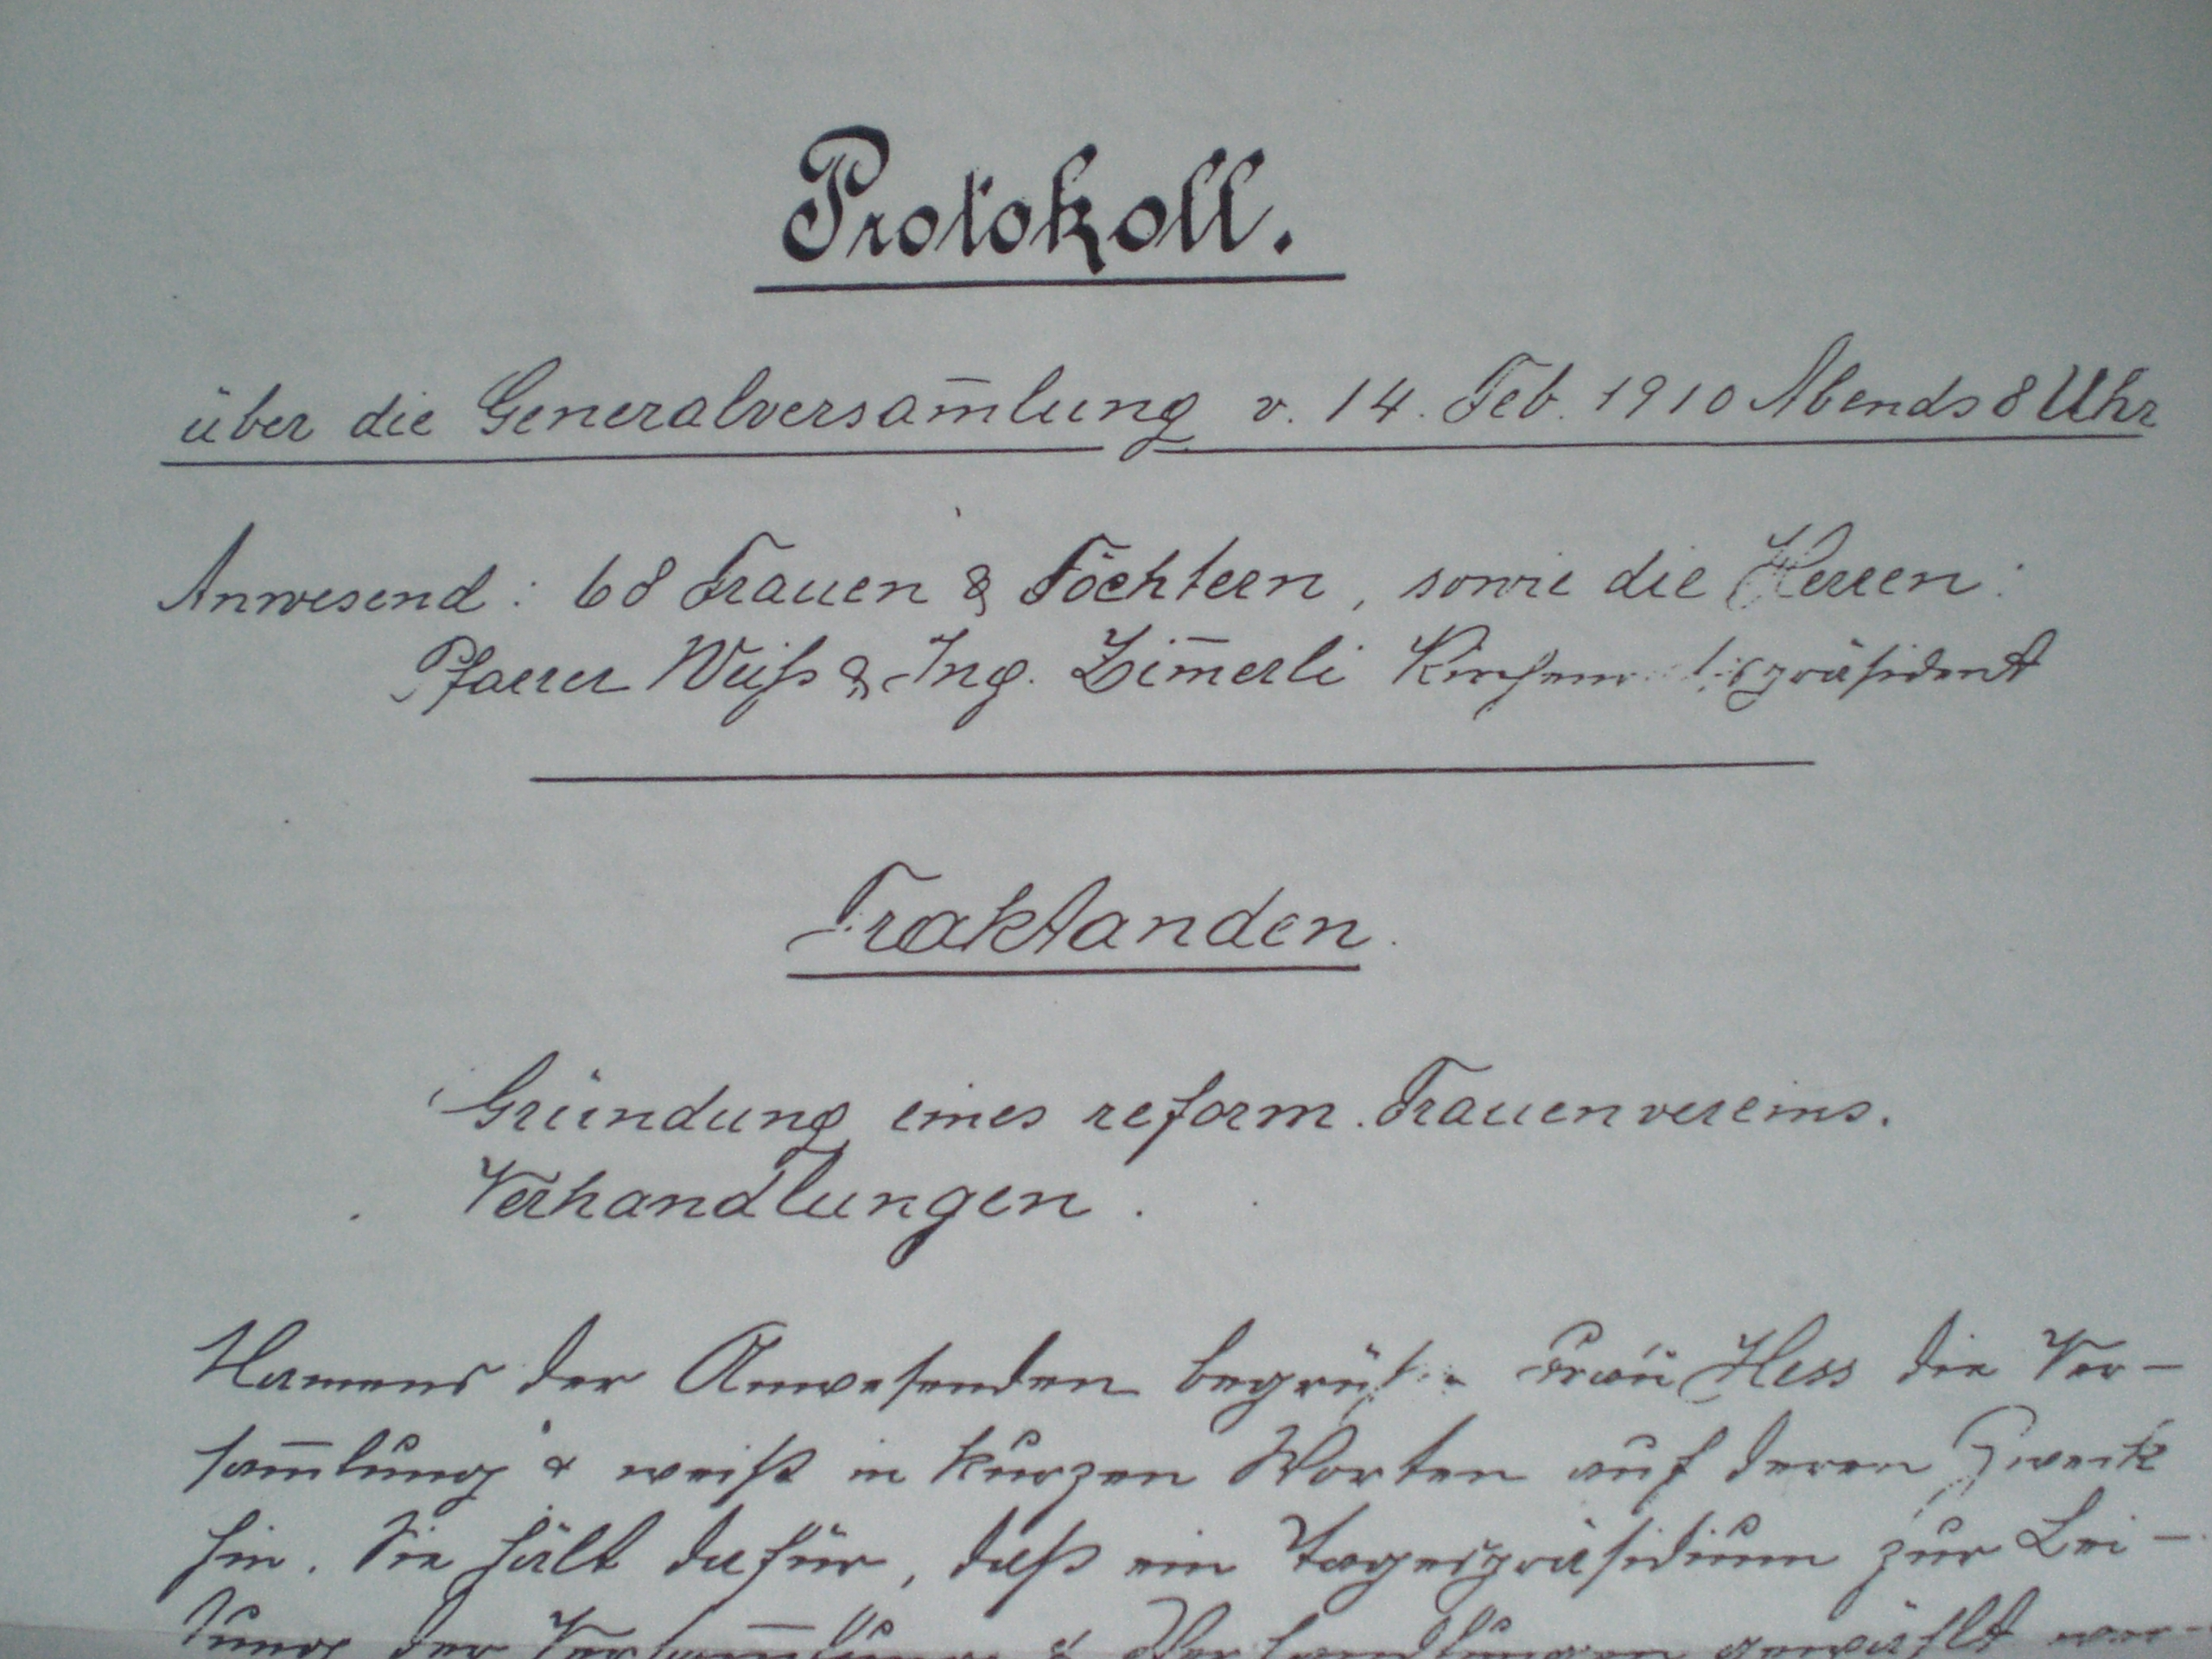 Protokoll.
über die Generalversam̅lung v. 14. Feb. 1910 Abends 8 Uhr
Anwesend: 68 Frauen & Töchtern, sowie die Herren:
Pfarrer Weiß & Ing. Zim̅erli präsident
Traktanden.
Gründung eines reform. Frauenvereins.
Verhandlungen.
Namens der Anwesenden Frau Hess die Ver-
sam̅lung & weist in kurzen Worten auf deren Zweck
hin. Sie hält dafür, daß ein Tagespräsidium zur Lei-
tung der Versam̅lung & Verhandlungen gewählt wer-